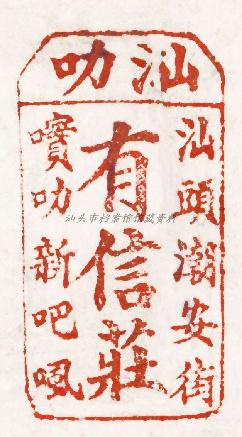 汕叻
汕頭潮安街
有信莊
實叻新吧虱
汕头市档案馆馆藏资料